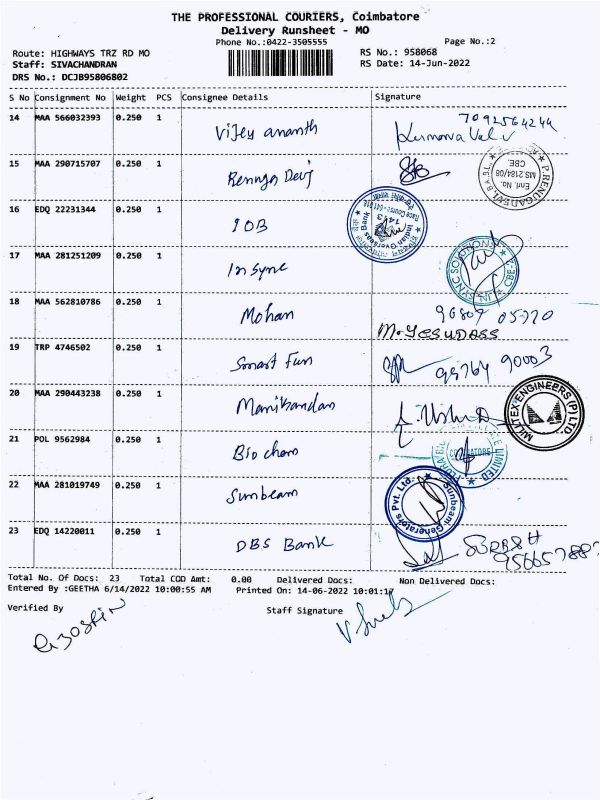 THE PROFESSIONAL COURIERS, Coimbatore
Delivery Runsheet - MO
Phone No.:0422-3505555
Page No.:2
Route: HIGHWAYS TRZ RD MO
RS No.: 958068
Staff: SIVACHANDRAN
RS Date: 14-Jun-2022
DRS No.: DCJB95806802
S No Consignment No Weight PCS Consignee Details Signature
14 MAA 566032393 0.250 1 Vijey ananth
15 MAA 290715707 0.250 1 Renuga Devi
P.RENUGADEVI, B.A.B.L.,
Enrl. No.
MS 2184/08
CBE.
16 EDQ 22231344 0.250 1 IOB
Indian Overseas Bank
1443
Race Course
17 MAA 281251209 0.250 1 Insync
INSYNC SOLUTIONS
CBE
18 MAA 562810786 0.250 1 Mohan
M.YESUDASS
19 TRP 4746502 0.250 1 Smart Fun
20 MAA 290443238 0.250 1 Manikandan
MILLTEX ENGINEERS (P) LTD.
21 POL 9562984 0.250 1 Bio chem
LIMITED
22 MAA 281019749 0.250 1 Sunbeam
Sunbeam Generators Pvt. Ltd.
23 EDQ 14220011 0.250 1 DBS Bank SURESH
Total No. Of Docs: 23 Total COD Amt: 0.00 Delivered Docs: Non Delivered Docs:
Entered By :GEETHA 6/14/2022 10:00:55 AM Printed On: 14-06-2022 10:01:17
Verified By Staff Signature